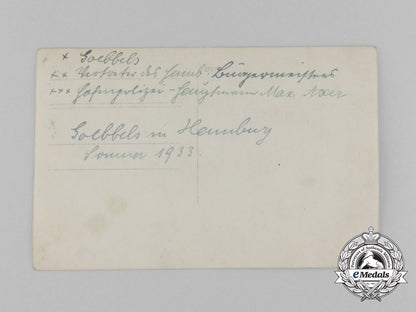 + Goebbels
++ Vertreter des Hamb. Bürgermeisters
+++ Hafenpolizei-Hauptmann Max
Goebbels in Hamburg
Sommer 1933.
eMedals